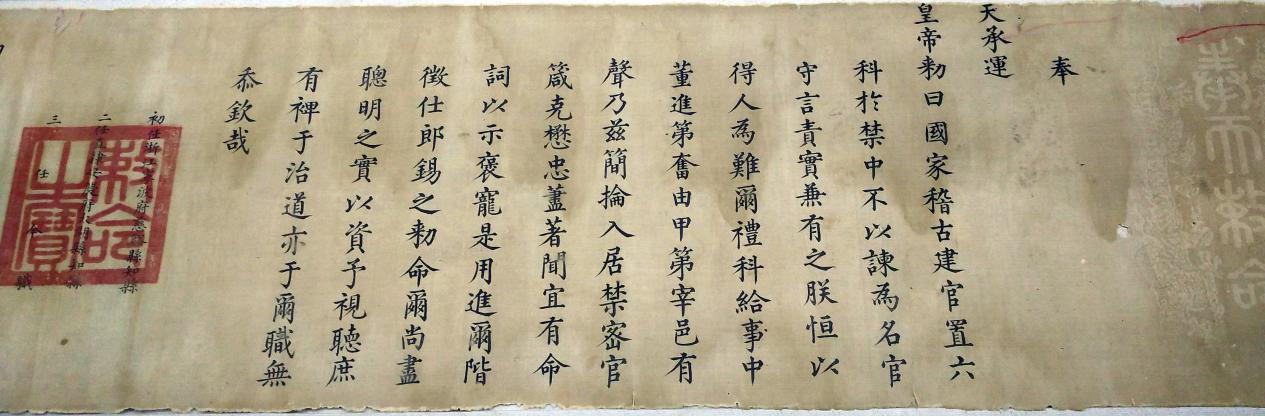 奉天敕命
奉
天承運
皇帝勑曰國家稽古建官置六
科於禁中不以諫為名官
守言責實兼有之朕恒以
得人為難爾禮科給事中
董進第奮由甲第宰邑有
聲乃兹簡掄入居禁密官
箴克懋忠藎著聞宜有命
詞以示褒寵是用進爾階
徵仕郎錫之勑命爾尚盡
聰明之實以資予視聽庶
有裨于治道亦于爾職無
忝欽哉
初任浙江寧波府慈谿縣知縣
二任直隸府縣知縣
三任今職
敕命之寶